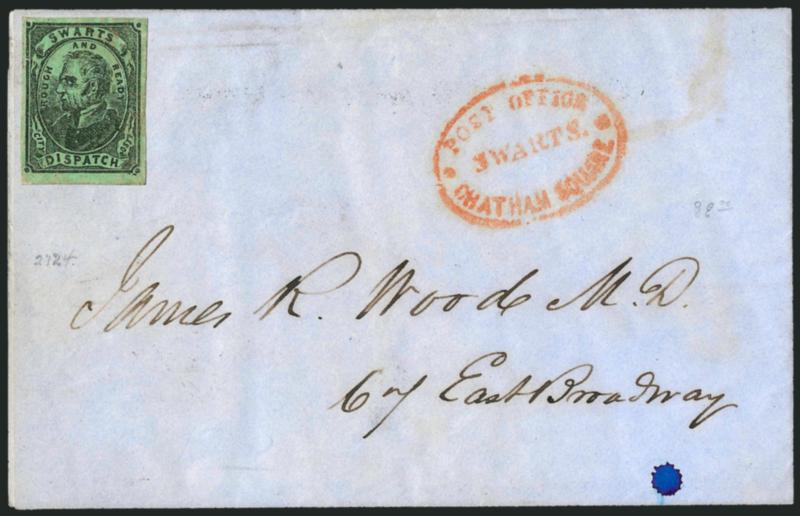 SWARTS
AND
ROUGH READY
CITY DISPATCH POST
POST OFFICE
SWARTS.
CHATHAM SQUARE
2724.
James R. Wood M.D.
67 East Broadway